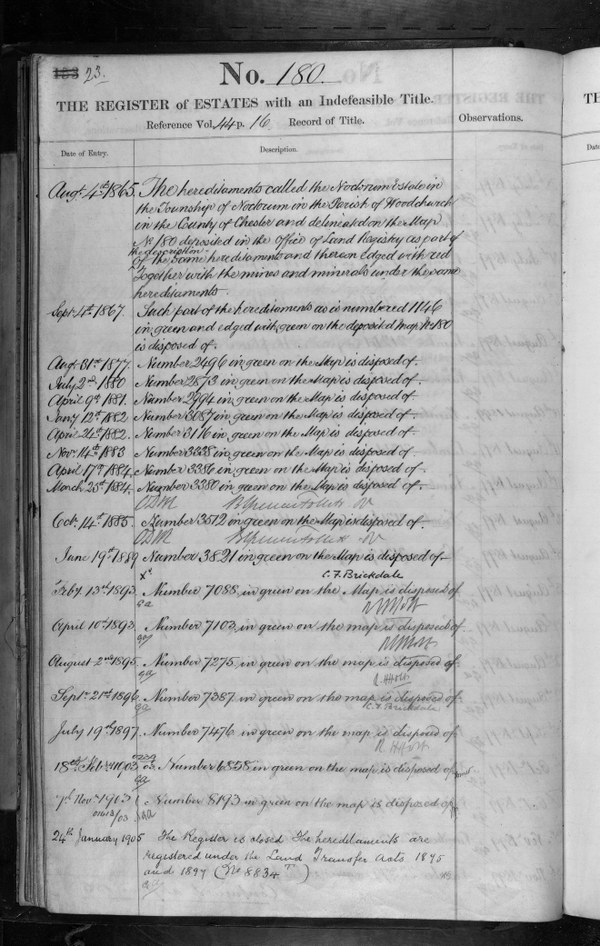 183 23.
No. 180.
THE REGISTER of ESTATES with an Indefeasible Title.
Reference Vol. 44 p. 16 Record of Title.
Observations.
Date of Entry.
Description.
Augt. 4th 1865. The hereditaments called the Noctorum Estate in
the Township of Noctorum in the Parish of Woodchurch
in the County of Chester and delineated on the Map
No 180 deposited in the Office of Land Registry as part of
the description
of the same hereditaments and therein edged with red
Together with the mines and minerals under the same
hereditaments.
Sept. 4th 1867. Such part of the hereditaments as is numbered 1146
in green and edged with green on the deposited Map No 180
is disposed of.
Augt. 31st 1877. Number 2496 in green on the Map is disposed of.
July 2nd 1880 Number 2873 in green on the Map is disposed of.
April 9th 1881. Number 2994 in green on the Map is disposed of.
Jany 12th 1882. Number 3087 in green on the Map is disposed of.
April 24th 1882. Number 3116 in green on the Map is disposed of.
Nov. 14th 1883 Number 3338 in green on the Map is disposed of.
April 17th 1884. Number 3386 in green on the Map is disposed of.
March 25th 1884. Number 3380 in green on the Map is disposed of.
Oct. 14th 1885. Number 3512 in green on the Map is disposed of.
June 19th 1889 Number 3821 in green on the Map is disposed of
C. F. Brickdale
Feby. 13th 1893. Number 7088 in green on the Map is disposed of
April 10th 1893. Number 7103 in green on the map is disposed of
August 2nd 1895. Number 7275 in green on the map is disposed of
Septr. 21st 1896. Number 7387 in green on the map is disposed of
C. F. Brickdale
July 19th 1897. Number 7476 in green on the map is disposed of
18th Feb 1903 Number 6858 in green on the map is disposed of
7th Nov 1903 Number 8193 in green on the map is disposed of
24th January 1905 The Register is closed The hereditaments are
registered under the Land Transfer Acts 1875
and 1897 (No 8834 T)